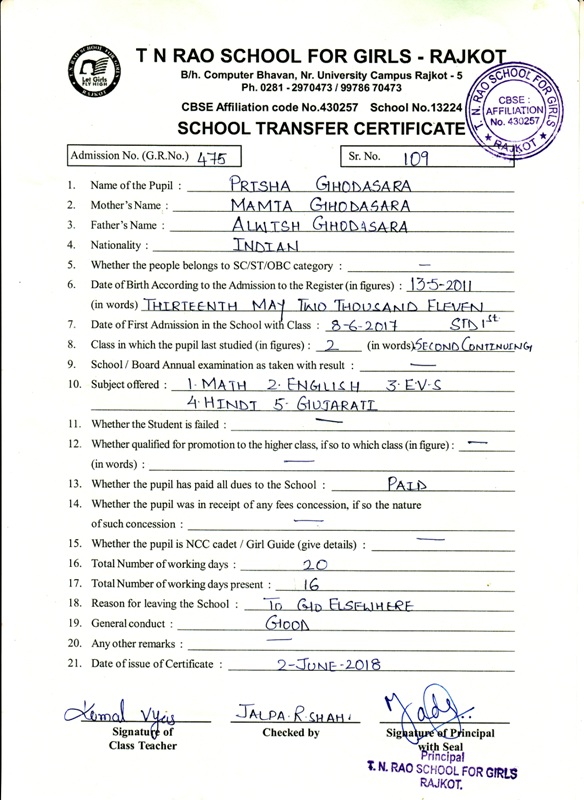 T. N. RAO SCHOOL FOR GIRLS
Let Girls
FLY HIGH
RAJKOT
T N RAO SCHOOL FOR GIRLS - RAJKOT
B/h. Computer Bhavan, Nr. University Campus Rajkot - 5
Ph. 0281 - 2970473 / 99786 70473
CBSE Affiliation code No.430257 School No.13224
SCHOOL TRANSFER CERTIFICATE
T. N. RAO SCHOOL FOR GIRLS
CBSE :
AFFILIATION
No. 430257
★ RAJKOT ★
Admission No. (G.R.No.) 475 Sr. No. 109
1. Name of the Pupil : PRISHA GHODASARA
2. Mother's Name : MAMTA GHODASARA
3. Father's Name : ALWISH GHODASARA
4. Nationality : INDIAN
5. Whether the people belongs to SC/ST/OBC category : —
6. Date of Birth According to the Admission to the Register (in figures) : 13-5-2011
(in words) THIRTEENTH MAY TWO THOUSAND ELEVEN
7. Date of First Admission in the School with Class : 8-6-2017 STD 1st
8. Class in which the pupil last studied (in figures) : 2 (in words) SECOND CONTINUING
9. School / Board Annual examination as taken with result : —
10. Subject offered : 1. MATH 2. ENGLISH 3. E.V.S
4. HINDI 5. GUJARATI
11. Whether the Student is failed : —
12. Whether qualified for promotion to the higher class, if so to which class (in figure) : —
(in words) : —
13. Whether the pupil has paid all dues to the School : PAID
14. Whether the pupil was in receipt of any fees concession, if so the nature
of such concession : —
15. Whether the pupil is NCC cadet / Girl Guide (give details) : —
16. Total Number of working days : 20
17. Total Number of working days present : 16
18. Reason for leaving the School : TO GO ELSEWHERE
19. General conduct : GOOD
20. Any other remarks : —
21. Date of issue of Certificate : 2-JUNE-2018
Komal Vyas JALPA.R.SHAH.
Signature of Class Teacher
Checked by
Signature of Principal with Seal
Principal
T. N. RAO SCHOOL FOR GIRLS
RAJKOT.